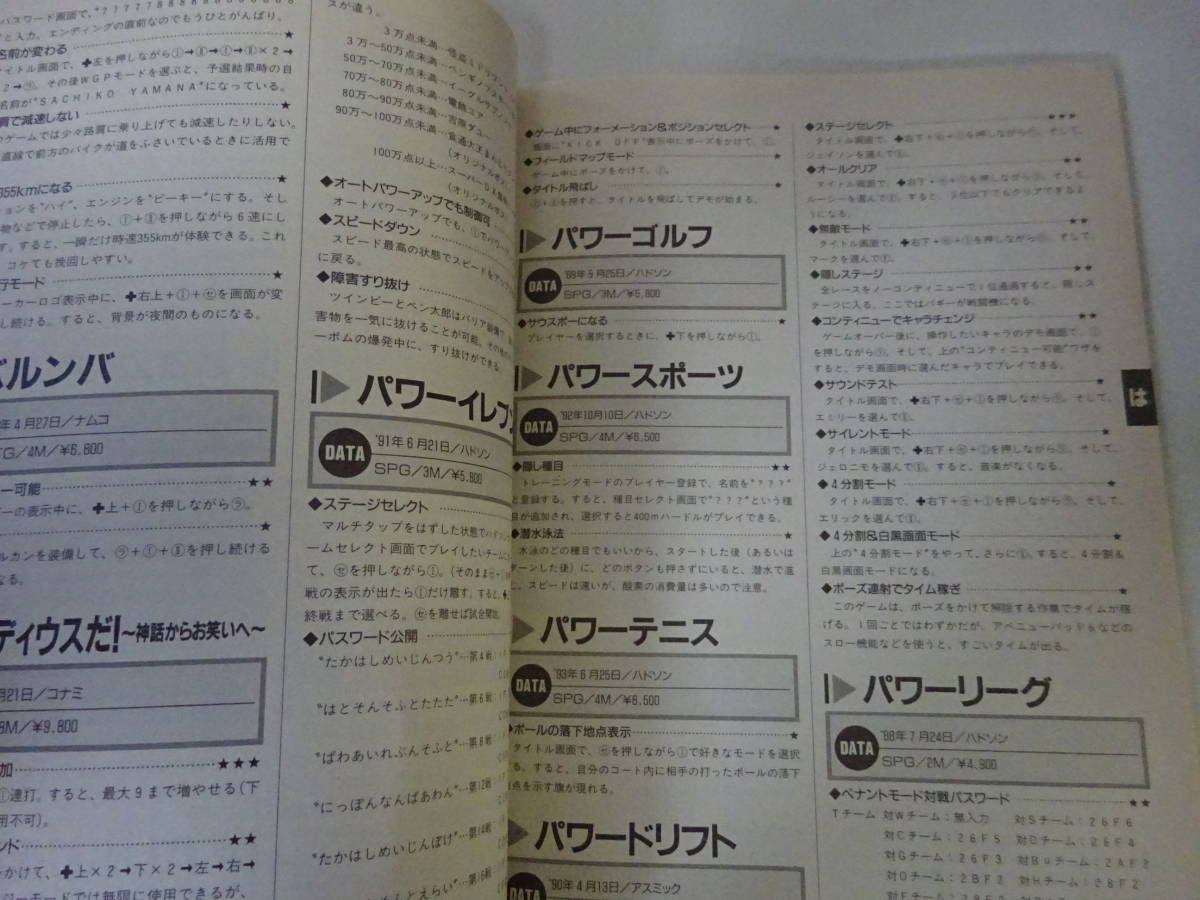 パスワード画面で、
と入力、エンディングの直前なのでもうひとがんばり。
名前が変わる
イトル画面で、✚左を押しながら
2→㋶。その後WGPモードを選ぶと、予選結果時の自
名前が“SACHIKO YAMANA”になっている。
肩で減速しない
のゲームでは少々路肩に乗り上げても減速したりしない。
直線で前方のバイクが道をふさいでいるときに活用で
355kmになる
ションを“ハイ”、エンジンを“ピーキー”にする。そし
物などで停止したら、Ⓘ+Ⅱを押しながら6速にし
す。すると、一瞬だけ時速355kmが体験できる。これ
、コケても挽回しやすい。
行モード
ーカーロゴ表示中に、✚右上+Ⓘ+㋝を画面が変
し続ける。すると、背景が夜間のものになる。
バルンバ
年4月27日/ナムコ
TG/4M/¥6,800
ー可能 ★★
ーの表示中に、✚上+Ⓘを押しながら㋶。
ルカンを装備して、㋶+Ⓘ+Ⅱを押し続ける
なる。
ディウスだ!〜神話からお笑いへ〜
月21日/コナミ
8M/¥9,800
加 ★★★
Ⓘ連打。すると、最大9まで増やせる(下
用不可)。
ンド ★★
かけて、✚上×2→下×2→左→右→
ジーモードでは無限に使用できるが、
スが違う。
3万点未満…怪盗
3万〜50万点未満…ペンギン
50万〜70万点未満…イーグル
70万〜80万点未満…電飾コア
80万〜90万点未満…
90万〜100万点未満…
(オリジナルボ
100万点以上…スーパー
(オリジナル
◆オートパワーアップでも制御可
オートパワーアップでも、Ⓘでパワー
◆スピードダウン
スピード最高の状態でスピードをアップ
に戻る。
◆障害すり抜け
ツインビーとペン太郎はバリア装備で、
害物を一気に抜けることが可能。その他の
ーボムの爆発中に、すり抜けができる。
パワーイレブン
DATA '91年6月21日/ハドソン
SPG/3M/¥5,800
◆ステージセレクト
マルチタップをはずした状態でハドソ
ームセレクト画面でプレイしたいチームに
て、㋝を押しながらⒾ。(そのまま
戦の表示が出たらⒾだけ離す。すると、
終戦まで選べる。㋝を離せば試合開始。
◆パスワード公開
“たかはしめいじんつう”…第4戦
“はとそんそふとたたた”…第6戦
“ぱわあいれぶんそふと”…第8戦
“にっぽんなんばあわん”…第12戦
“たかはしめいじんぼけ”…第14戦
そんとえらい”…第16戦
◆ゲーム中にフォーメーション&ポジションセレクト ★
画面に“KICK OFF”表示中にポーズをかけて、Ⓘ。
◆フィールドマップモード ★
ゲーム中にポーズをかけて、Ⓘ。
◆タイトル飛ばし ★
を押すと、タイトルを飛ばしてデモが始まる。
パワーゴルフ
DATA '89年5月25日/ハドソン
SPG/3M/¥5,800
◆サウスポーになる ★
プレイヤーを選択するときに、✚下を押しながらⒾ。
パワースポーツ
DATA '92年10月10日/ハドソン
SPG/4M/¥6,500
◆隠し種目 ★★
トレーニングモードのプレイヤー登録で、名前を“???”
と登録する。すると、種目セレクト画面で“???”という種
目が追加され、選択すると400mハードルがプレイできる。
◆潜水泳法 ★
水泳のどの種目でもいいから、スタートした後(あるいは
ターンした後)に、どのボタンも押さずにいると、潜水で進
む。スピードは速いが、酸素の消費量は多いので注意。
パワーテニス
DATA '93年6月25日/ハドソン
SPG/4M/¥6,500
◆ボールの落下地点表示 ★
タイトル画面で、㋝を押しながらⒾで好きなモードを選択
する。すると、自分のコート内に相手の打ったボールの落下
点を示す旗が現れる。
パワードリフト
DATA '90年4月13日/アスミック
◆ステージセレクト ★★★
タイトル画面で、✚右下+㋝+Ⓘを押しながら㋶。そして、
ジェイソンを選んでⅡ。
◆オールクリア ★★
タイトル画面で、✚右下+㋝+Ⓘを押しながら㋶。そして、
ルーシーを選んでⅡ。すると、3位以下でもクリアできるよ
うになる。
◆無敵モード ★★
タイトル画面で、✚右下+㋝+Ⓘを押しながら㋶。そして、
マークを選んでⅡ。
◆隠しステージ ★★
全レースをノーコンティニューで1位通過すると、隠しス
テージに入る。ここではバギーが戦闘機になる。
◆コンティニューでキャラチェンジ ★★
ゲームオーバー後に、操作したいキャラのデモ画面で、Ⓘ
を押しながら㋶。そして、上の“コンティニュー可能”ワザを
すると、デモ画面時に選んだキャラでプレイできる。
◆サウンドテスト ★
タイトル画面で、✚右下+㋝+Ⓘを押しながら㋶。そして、
エミリーを選んでⅡ。
◆サイレントモード ★
タイトル画面で、✚右下+㋝+Ⓘを押しながら㋶。そして、
ジェロニモを選んでⅡ。すると、音楽がなくなる。
◆4分割モード ★
タイトル画面で、✚右下+㋝+Ⓘを押しながら㋶。そして、
エリックを選んでⅡ。
◆4分割&白黒画面モード ★
上の“4分割モード”をやって、さらにⅡ。すると、4分割&
白黒画面モードになる。
◆ポーズ連射でタイム稼ぎ ★
このゲームは、ポーズをかけて解除する作業でタイムが稼
げる。1回ごとではわずかだが、アベニューパッド6などの
スロー機能などを使うと、すごいタイムが出る。
パワーリーグ
DATA '88年7月24日/ハドソン
SPG/2M/¥4,900
◆ペナントモード対戦パスワード ★★
Tチーム 対Wチーム:無入力 対Sチーム:26F6
対Cチーム:26F5 対Dチーム:26F4
対Gチーム:26F3 対Buチーム:2AF2
対Oチーム:2BF2 対Hチーム:28F2
は